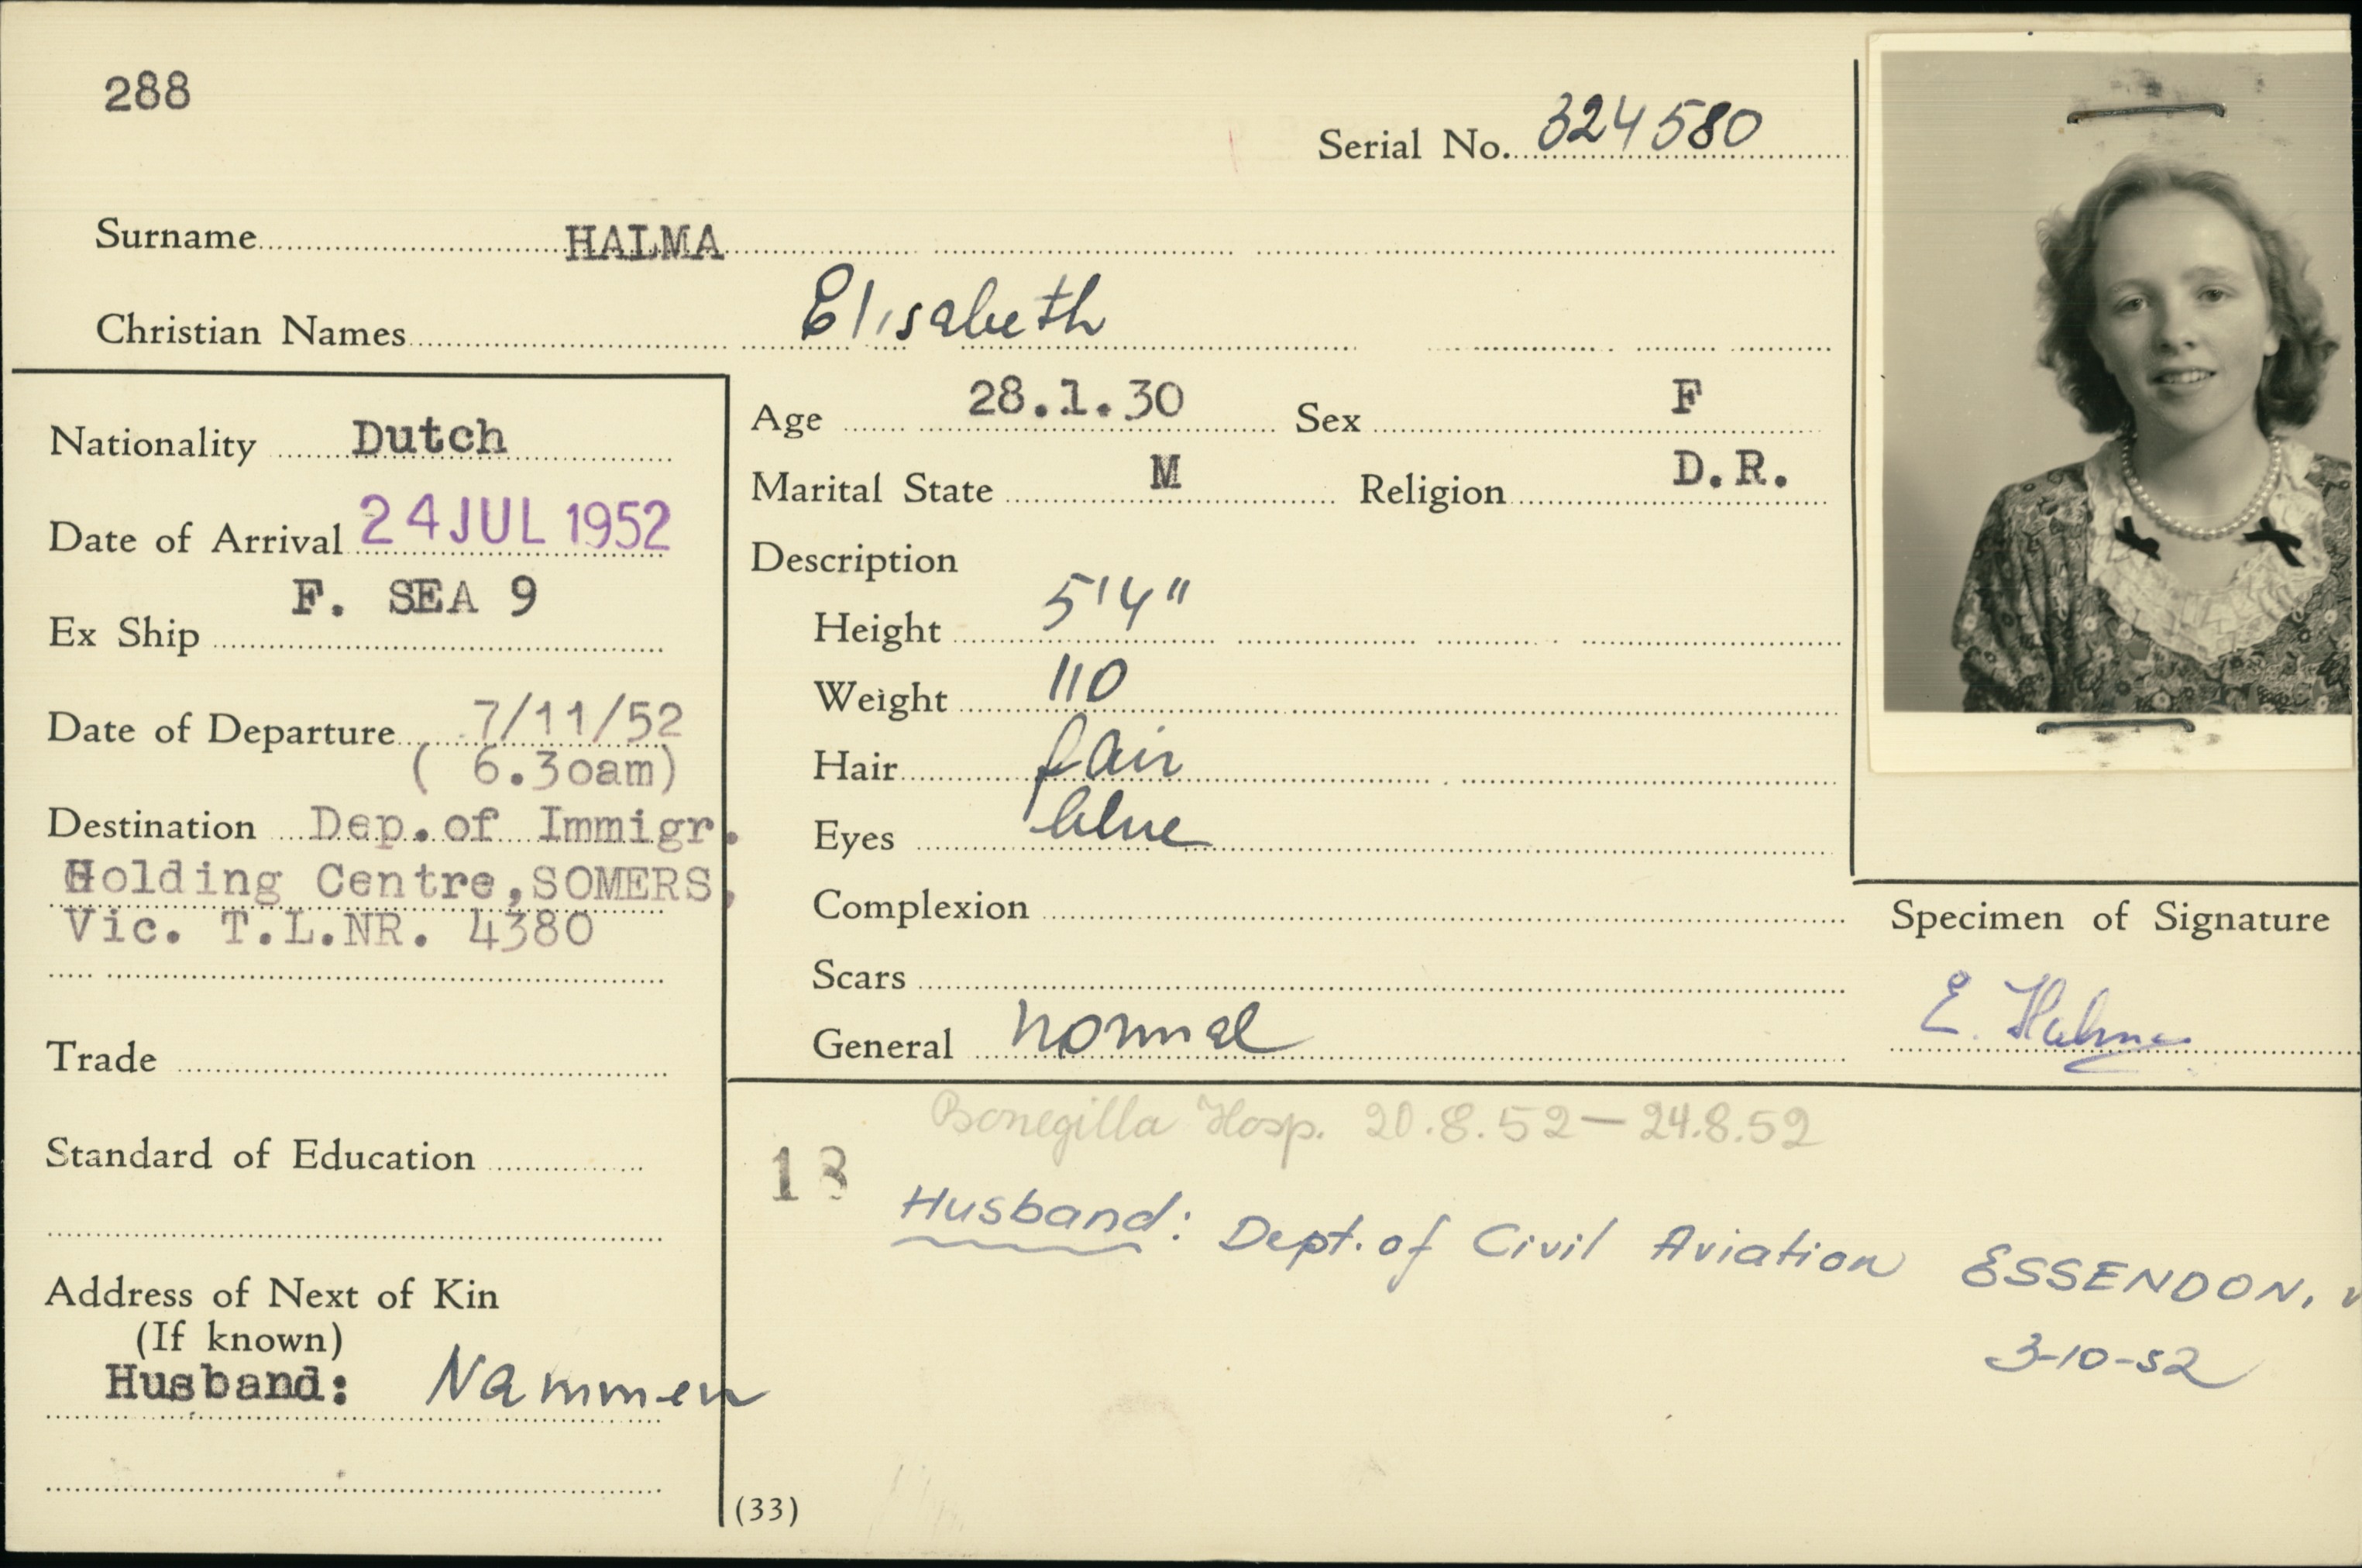 288
Serial No. 324580
Surname HALMA
Christian Names Elisabeth
Nationality Dutch
Date of Arrival 24 JUL 1952
F. SEA 9
Ex Ship
Date of Departure 7/11/52
( 6.30am)
Destination Dep.of Immigr.
Holding Centre,SOMERS,
Vic. T.L.NR. 4380
Trade
Standard of Education
Address of Next of Kin
(If known)
Husband: Nammen
Age 28.1.30 Sex F
Marital State M Religion D.R.
Description
Height 5'4"
Weight 110
Hair fair
Eyes blue
Complexion
Scars
General normal
Specimen of Signature
E. Halma
Bonegilla Hosp. 20.8.52 — 24.8.52
13
Husband: Dept. of Civil Aviation ESSENDON,
3-10-52
(33)